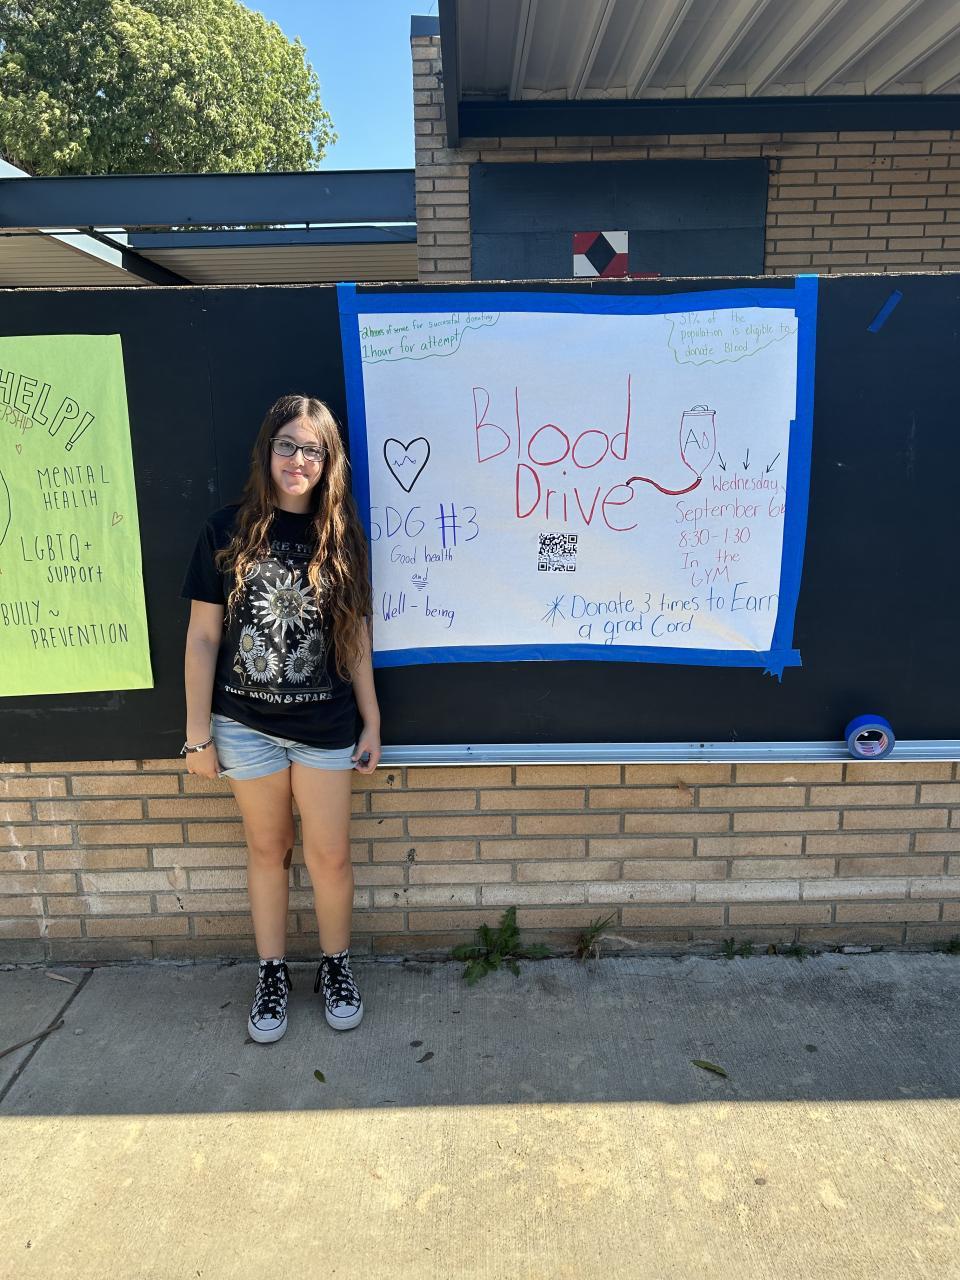 HELP!
MENTAL
HEALTH
LGBTQ+
support
BULLY ~
PREVENTION
THE MOON & STARS
2 hours of service for successful donating
1 hour for attempt
31% of the
population is eligible to
donate Blood
Blood
Drive
AB
SDG #3
Good health
and
Well-being
Wednesday,
September 6
8:30-1:30
In the
GYM
* Donate 3 times to Earn
a grad Cord